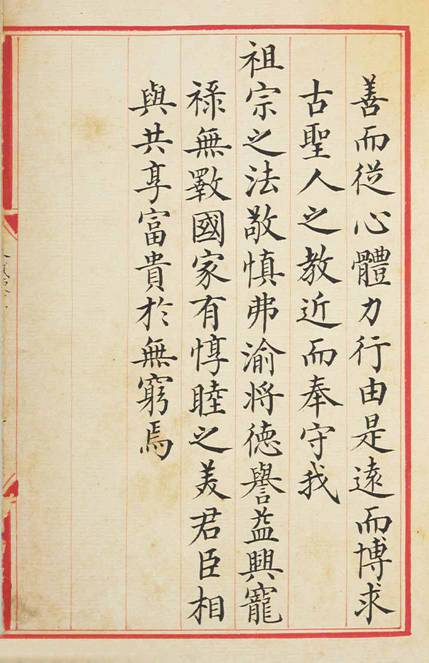 善而從心體力行由是遠而博求
古聖人之教近而奉守我
祖宗之法敬慎弗渝將德譽益興寵
祿無斁國家有惇睦之美君臣相
與共享富貴於無窮焉